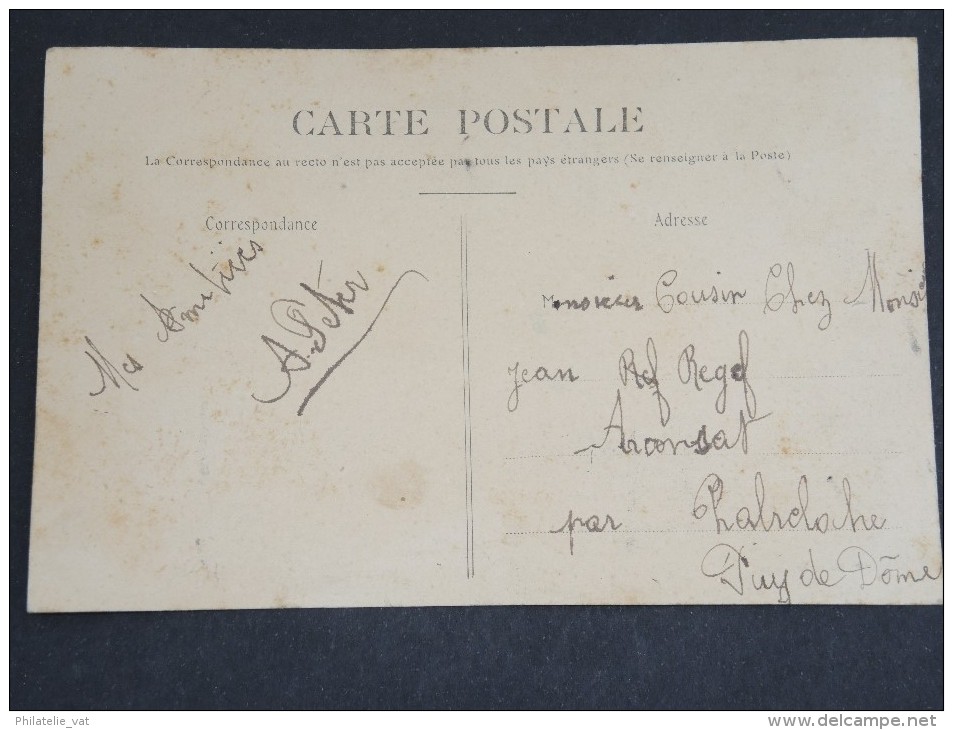 CARTE POSTALE
La Correspondance au recto n'est pas acceptée par tous les pays étrangers (Se renseigner à la Poste)
Correspondance
Mes Amitiés
A. Peter
Adresse
Monsieur Cousin Chez Monsieu
Jean Ref Regef
Arconsat
par Chabreloche
Puy de Dôme
Philatelie_vat
www.delcampe.net